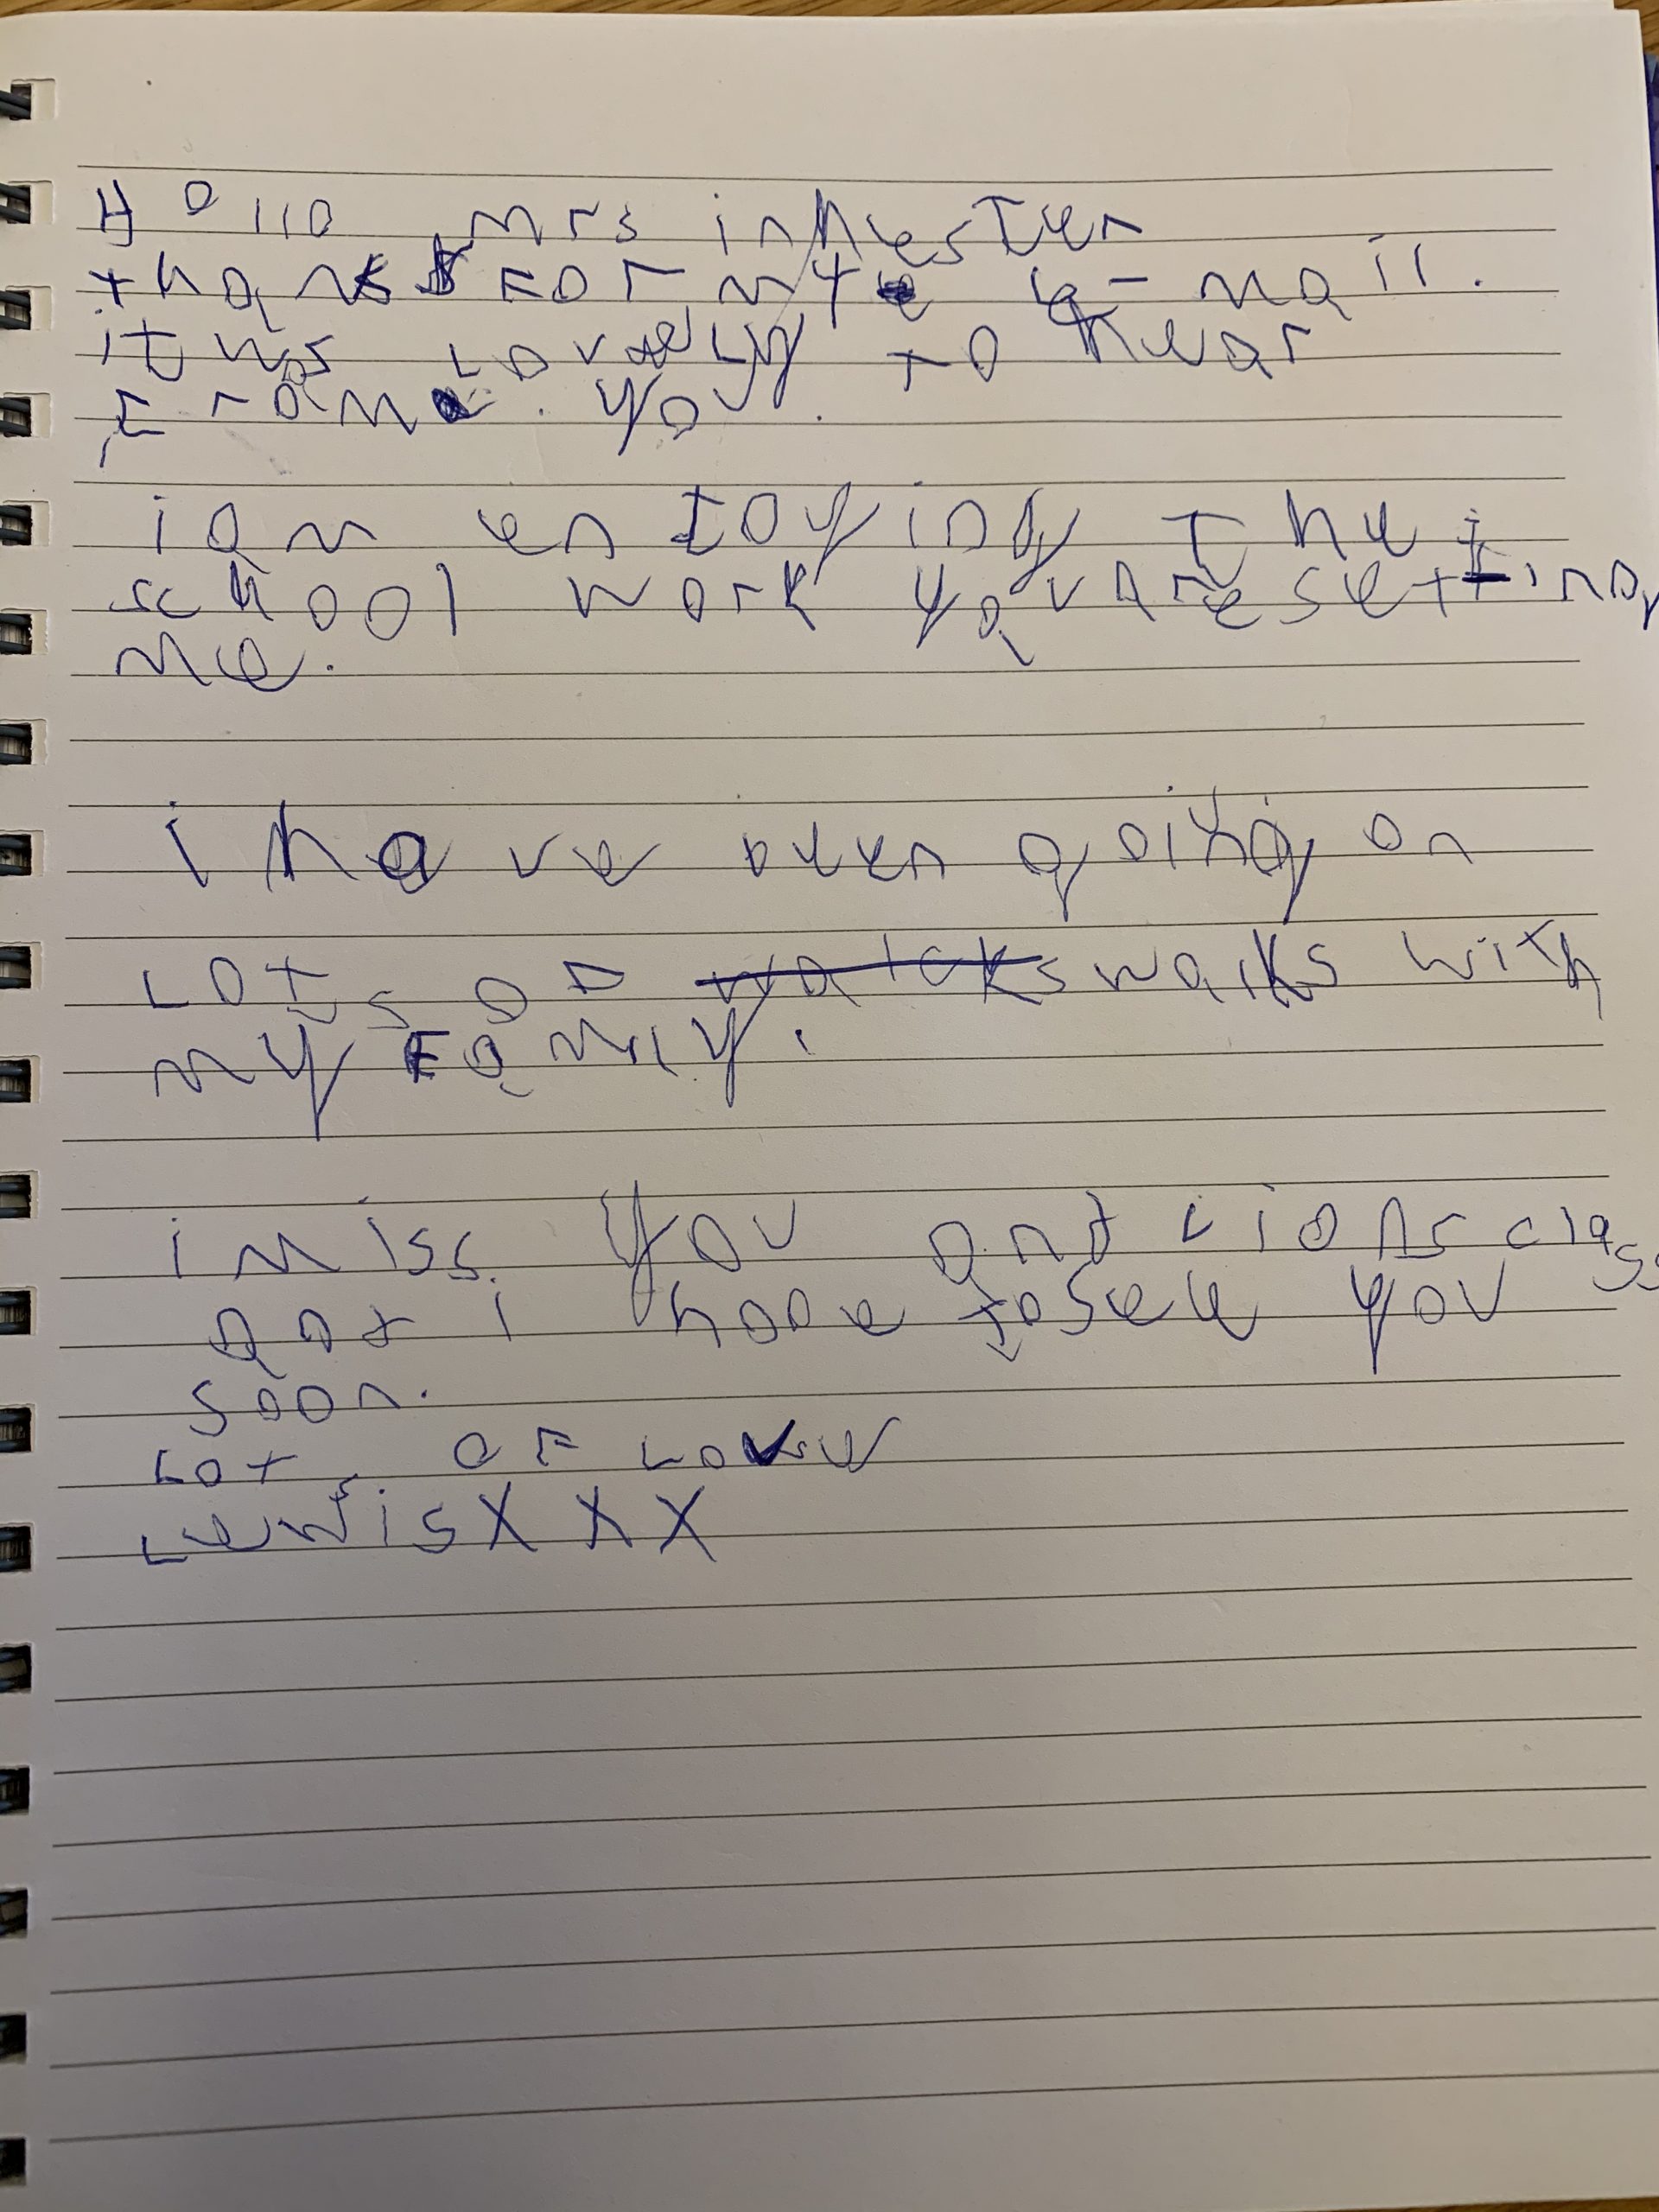 Hello Mrs inkester
thanks For my e-mail.
it was Lovely to hear
From you.
i am enjoying the
school work you are setting
me.
i have been going on
Lots of walks with
my Family.
i miss you and Lions class
and i hope to see you
soon.
Lots of Love
Lewis X X X